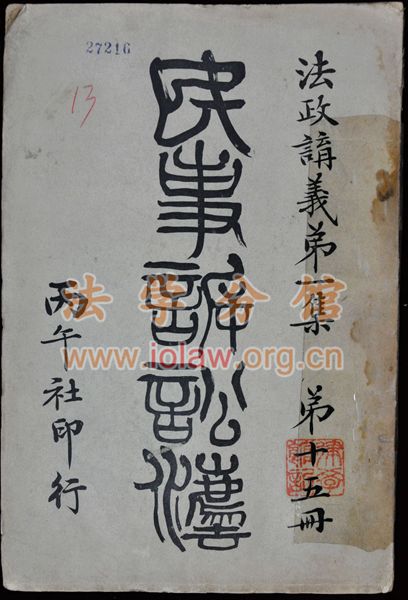 27216
13
法政講義弟一集 弟十五冊
民事訴訟灋
丙午社印行
法学分馆
www.iolaw.org.cn